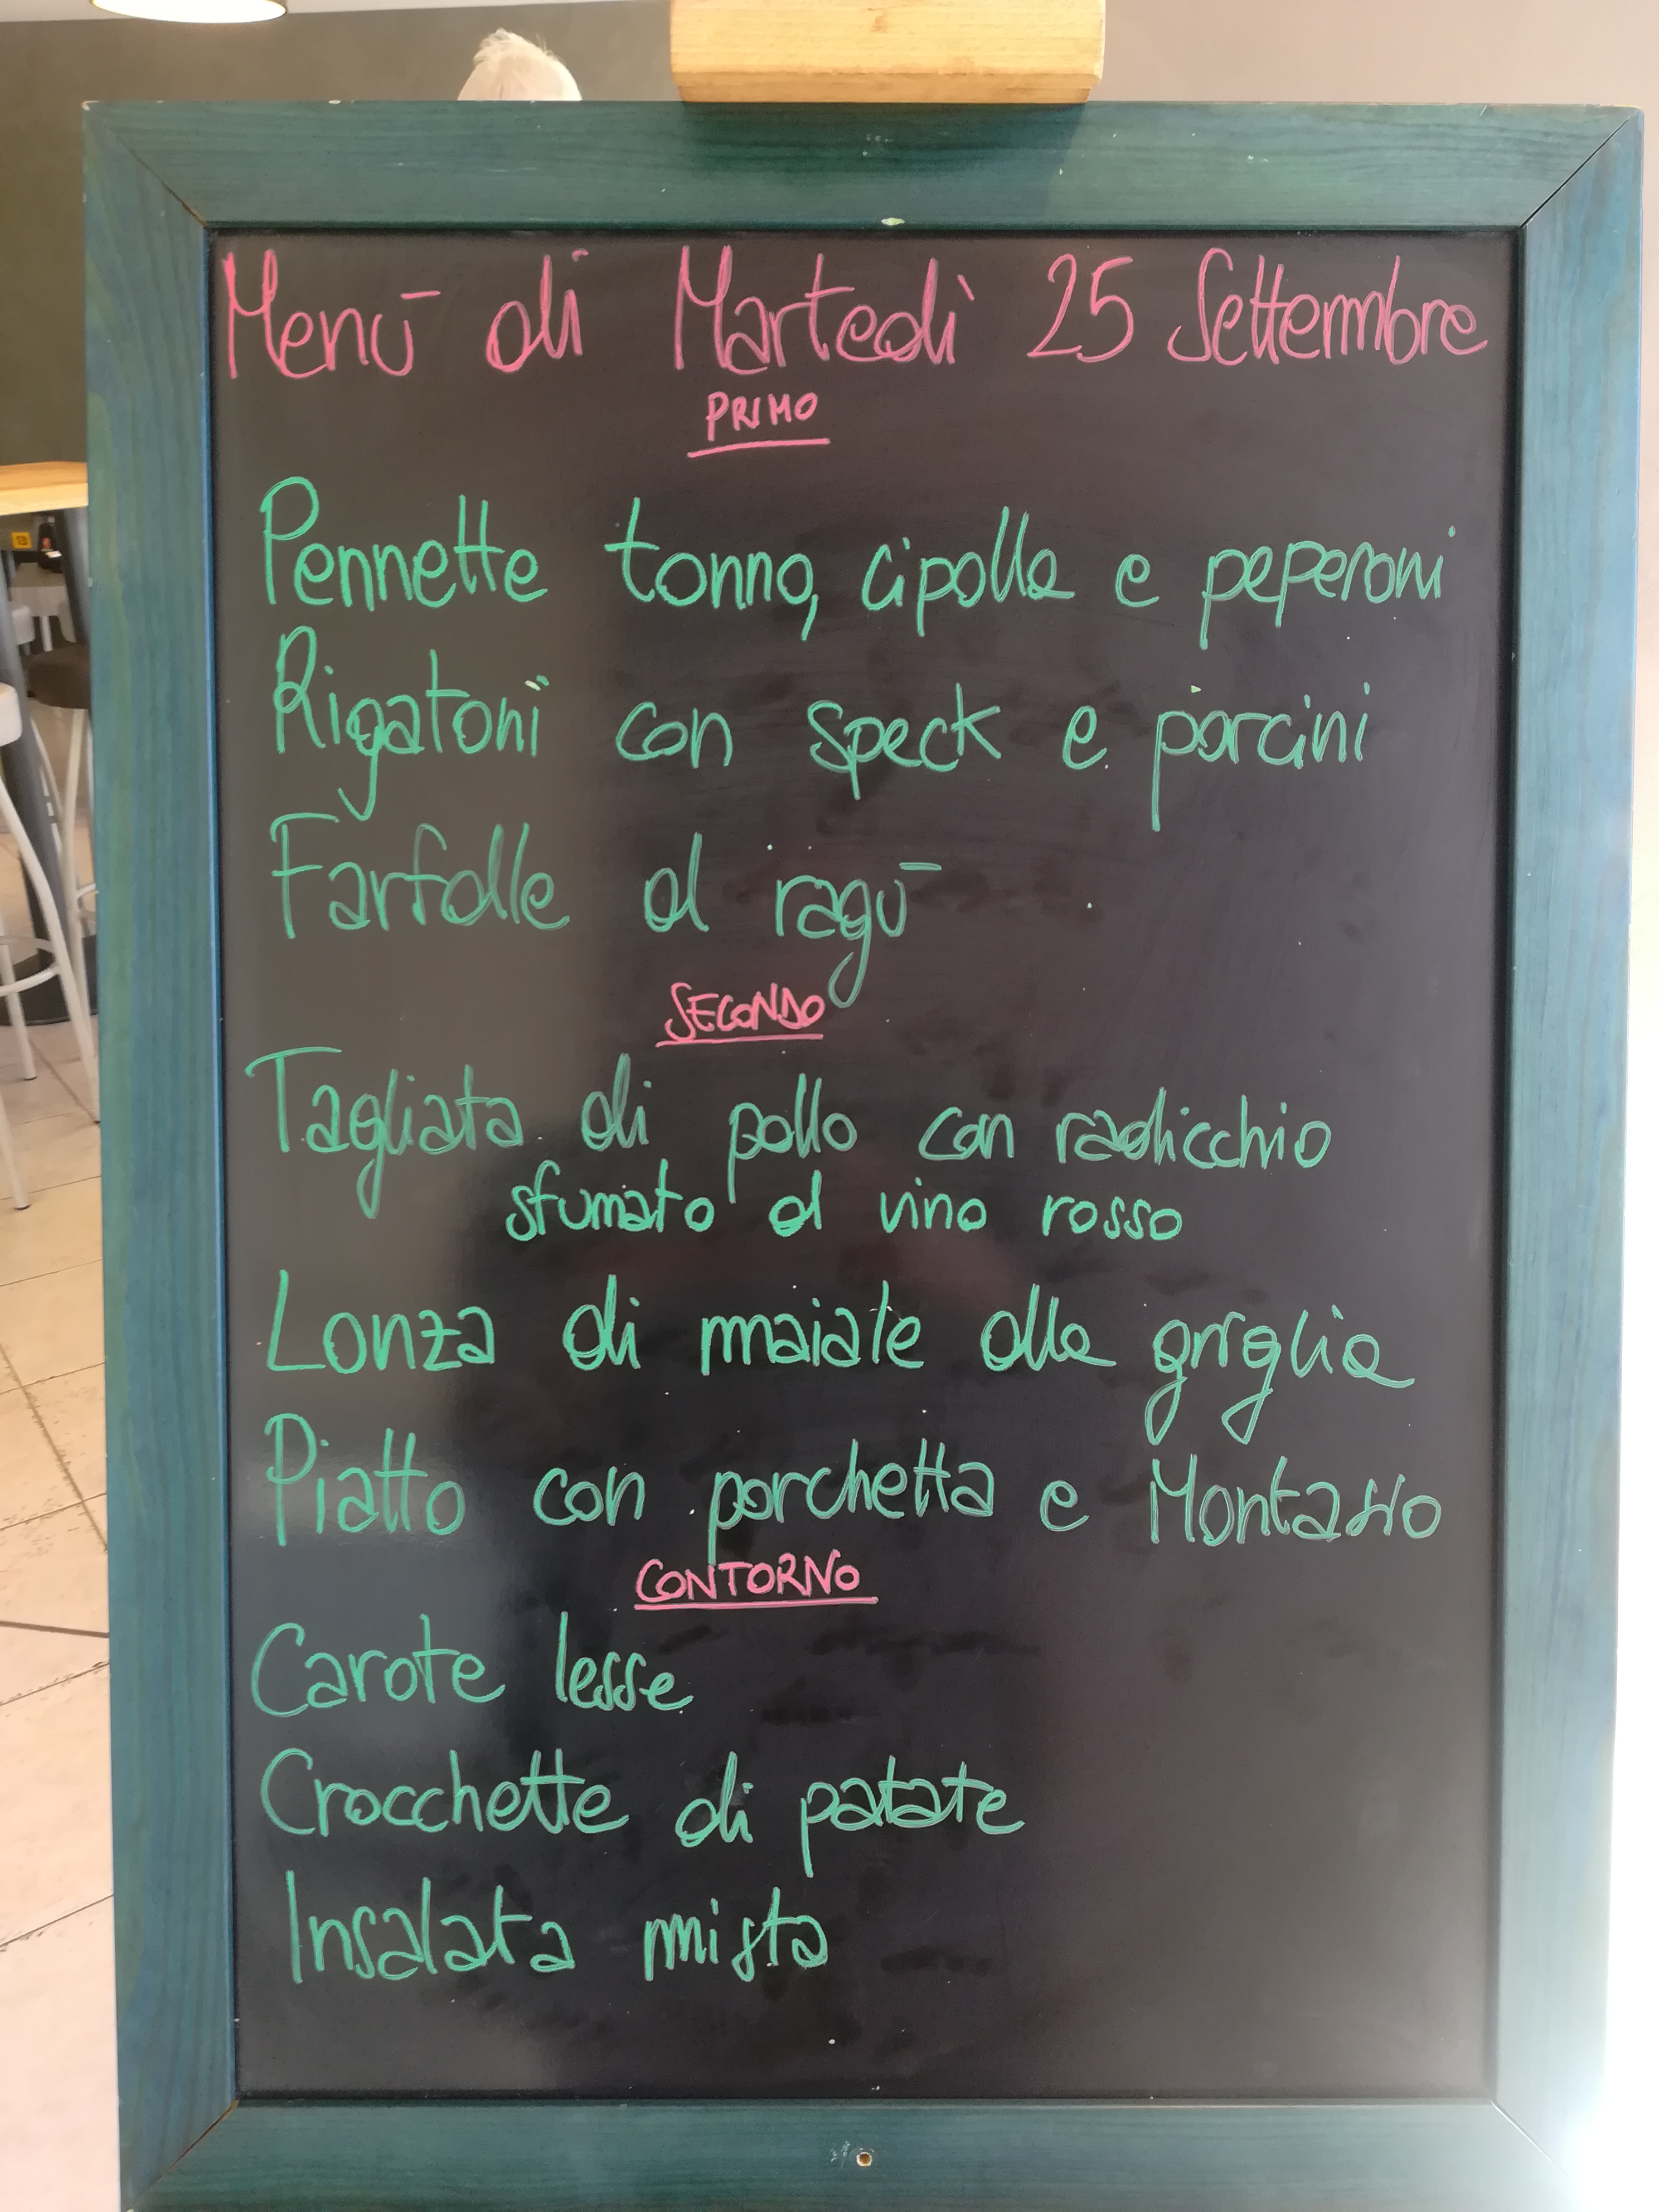 Menū di Martedì 25 Settembre
PRIMO
Pennette tonno, cipolla e peperoni
Rigatoni con speck e porcini
Farfalle al ragū
SECONDO
Tagliata di pollo con radicchio
sfumato al vino rosso
Lonza di maiale alla griglia
Piatto con porchetta e Montasio
CONTORNO
Carote lesse
Crocchette di patate
Insalata mista